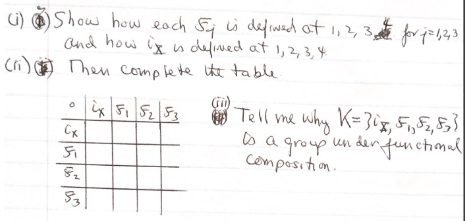 (i) Show how each ξj is defined at 1, 2, 3, 4 for j=1,2,3
and how ix is defined at 1, 2, 3, 4
(ii) Then complete the table.
∘ ix ξ1 ξ2 ξ3
ix
ξ1
ξ2
ξ3
(iii)
Tell me why K={ix, ξ1, ξ2, ξ3}
is a group under functional
composition.